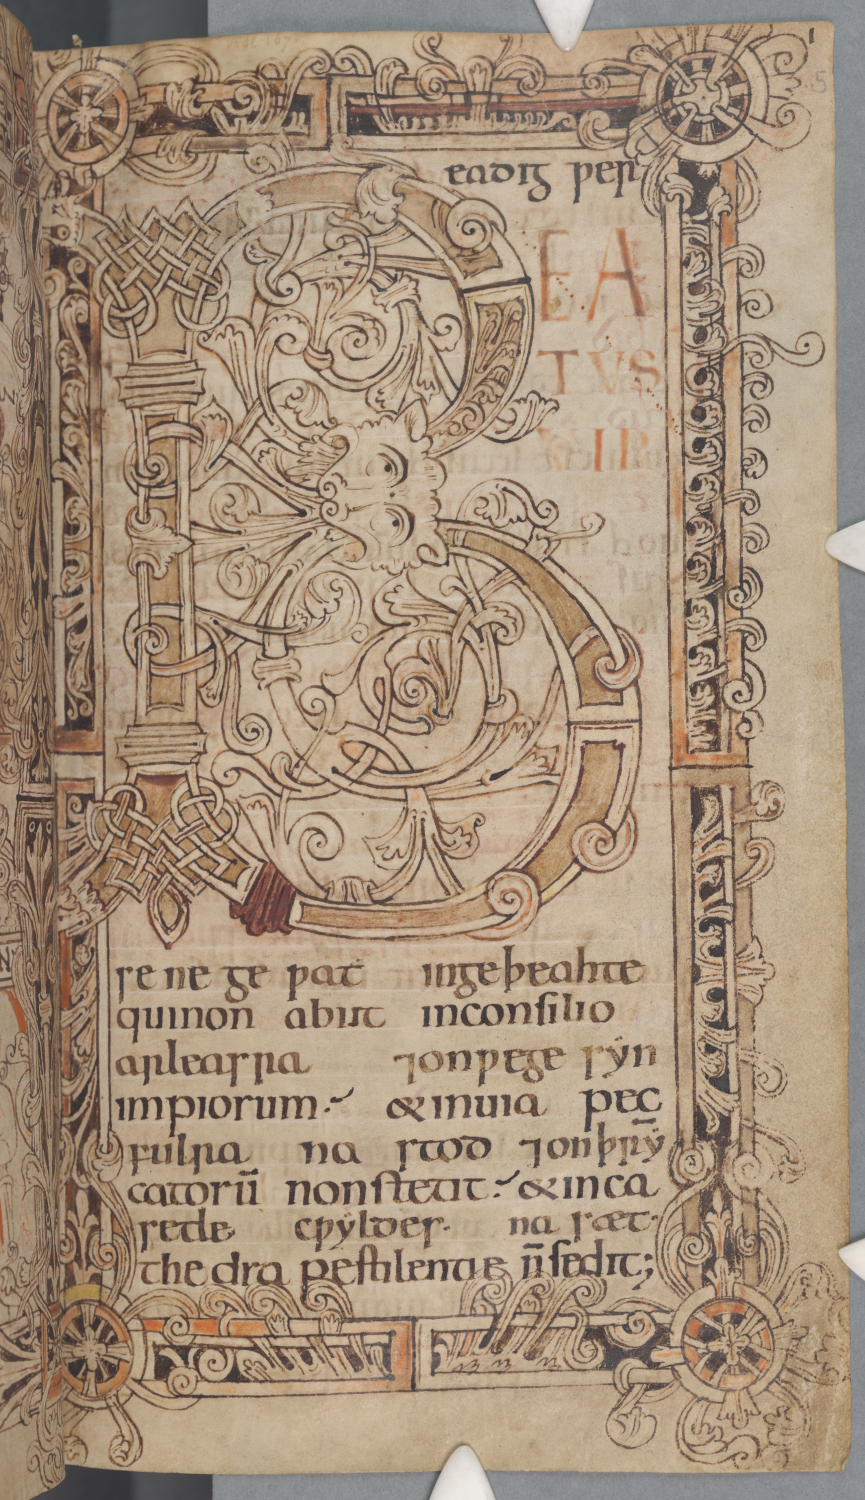 eadig ƿer
BEA
TVS
VIR
se ne ge ƿat ingeþeahte
quinon abiit inconsilio
arleasra ⁊onƿege sẏn
impiorum & inuia pec
fulra na stod ⁊onþrȳ
catorū non stetit & inca
setle cƿẏldes na sæt
thedra pestilentie n̄ sedit;
5